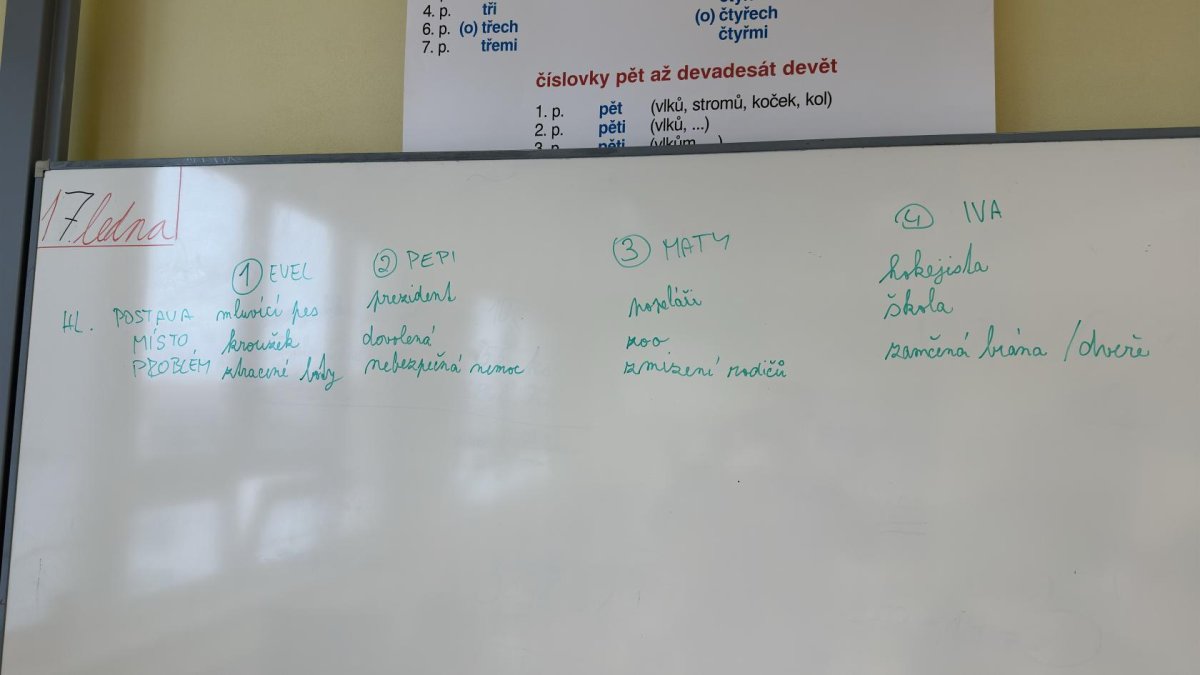 4. p. tři
6. p. (o) třech (o) čtyřech
7. p. třemi čtyřmi
číslovky pět až devadesát devět
1. p. pět (vlků, stromů, koček, kol)
2. p. pěti (vlků, ...)
3. p. pěti (vlkům ...)
17. ledna
1 EVEL 2 PEPI 3 MATY 4 IVA
HL. POSTAVA mluvící pes prezident popeláři hokejista
MÍSTO kroužek dovolená zoo škola
PROBLÉM ztracené boty nebezpečná nemoc zmizení rodičů zamčená brána / dveře